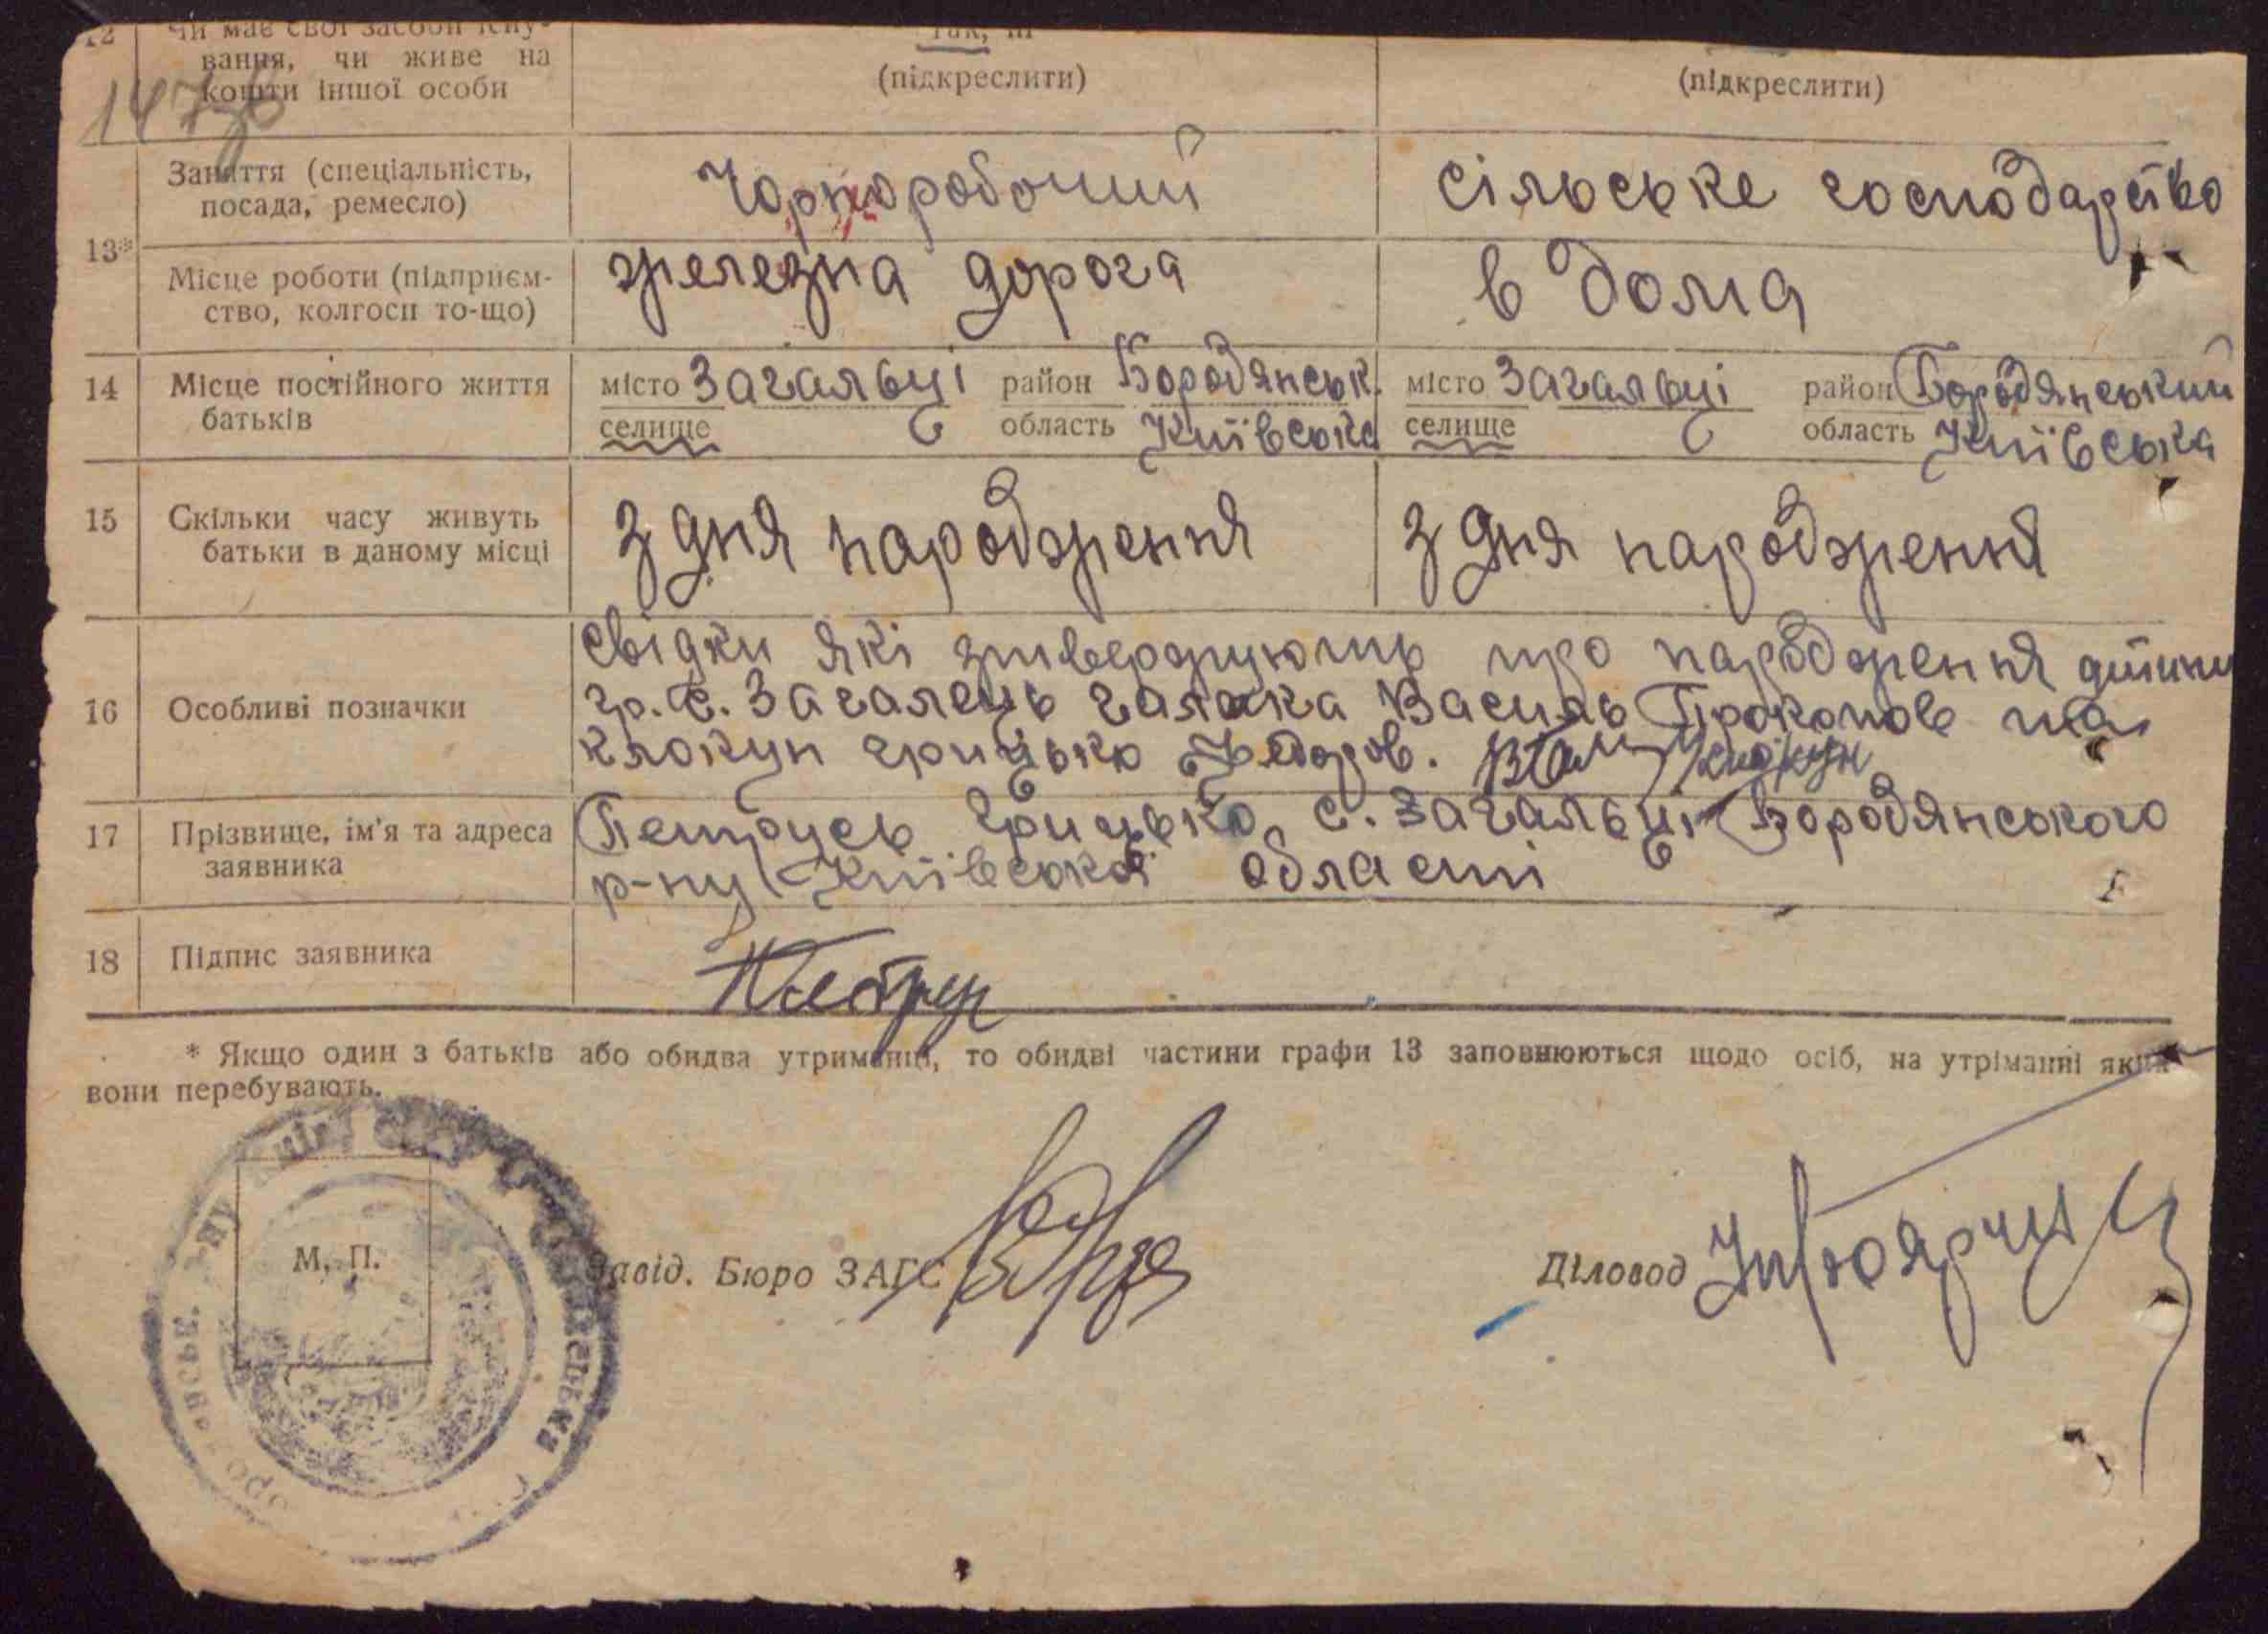 12 Чи має свої засоби існу- так, ні
вання, чи живе на (підкреслити) (підкреслити)
кошти іншої особи
Заняття (спеціальність, Чорноробочий сільське господарство
посада, ремесло)
13*
Місце роботи (підприєм- железна дорога в дома
ство, колгосп то-що)
14 Місце постійного життя місто Загальці район Бородянськ. місто Загальці район Бородянський
батьків селище область Київська селище область Київська
15 Скільки часу живуть з дня народження з дня народження
батьки в даному місці
свідки які зтверджують про народження дитини
16 Особливі позначки гр. с. Загалець Галака Василь Прокопов та
Клокун Грицько Федоров. Клокун
17 Прізвище, ім'я та адреса Петрусь Грицько с. Загальці Бородянського
заявника р-ну Київської області
18 Підпис заявника Петрусь
* Якщо один з батьків або обидва утриманці, то обидві частини графи 13 заповнюються щодо осіб, на утріманні яких
вони перебувають.
М. П.
Завід. Бюро ЗАГС Діловод